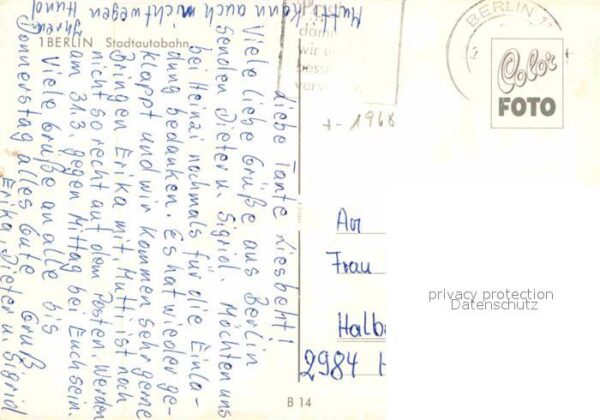 Liebe Tante Liesbeth!
Viele liebe Grüße aus Berlin
senden Dieter u. Sigrid. Möchten uns
bei Heinzi nochmals für die Einla-
dung bedanken. Es hat wieder ge-
klappt und wir kommen sehr gerne
Bringen Erika mit. Mutti ist noch
nicht so recht auf dem Posten. Werden
am 31.3. gegen Mittag bei Euch sein.
Viele Grüße an alle bis
Donnerstag alles Gute Gruß
Erika, Dieter u. Sigrid
Mutti kann auch nicht wegen
Ihren Hund
1 BERLIN Stadtautobahn
BERLIN 11
wir
Color
FOTO
1968
An
Frau
Halb
2984 H
privacy protection
Datenschutz
B 14